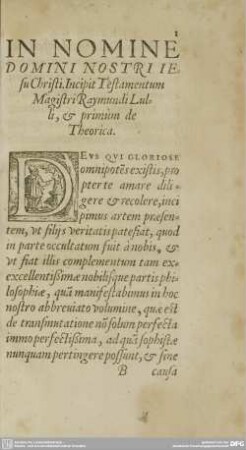 1
IN NOMINE
DOMINI NOSTRI IE-
su Christi. Incipit Testamentum
Magistri Raymundi Lul-
li, & primùm de
Theorica.
DEVS QVI GLORIOSE
omnipotẽs existis, pro
pter te amare dili-
gere & recolere, inci
pimus artem præsen-
tem, vt filijs veritatis patefiat, quod
in parte occultatum fuit à nobis, &
vt fiat illis complementum tam ex
excellentißimæ nobilisque partis phi-
losophiæ, quã manifestabimus in hoc
nostro abbreuiato volumine, quæ est
de transmutatione nõ solùm perfecta
immo perfectißima, ad quã sophistæ
nunquam pertingere possunt, & sine
B causa